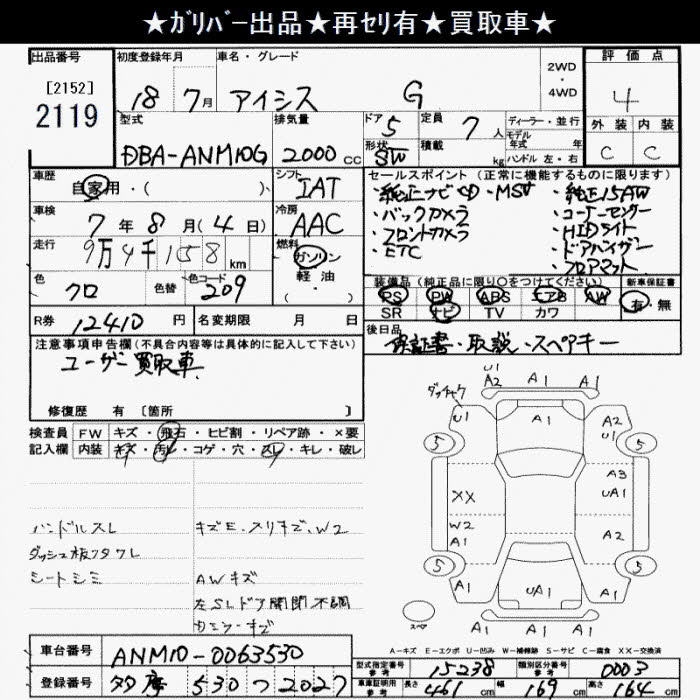 ★ｶﾞﾘﾊﾞｰ出品★再ｾﾘ有★買取車★
出品番号
[2152]
2119
初度登録年月
18 7月
車名・グレード
アイシス G
2WD
・
4WD
評価点
4
外装 内装
C C
型式
DBA-ANM10G
排気量
2000 cc
ドア
5
定員
7 人
ディーラー・並行
モデル
年式 年
形状
SW
積載 kg
ハンドル 左・右
車歴
自家用・( )
シフト
IAT
車検
7年8月(4日)
冷房
AAC
走行
9万4千158km
燃料
ガソリン
軽油
・( )
色
クロ
色替
色コード
209
セールスポイント (正常に機能するものに限ります)
・純正ナビ CD・MSV
・バックカメラ
・フロントカメラ
・ETC
・純正15AW
・コーナーセンサー
・HIDライト
・ドアバイザー
・フロアマット
装備品(純正品に限り○をつけてください)
PS PW ABS エアB AW
SR ナビ TV カワ
新車保証書
有・無
R券 12410円
名変期限 月 日
後日品
保証書・取説・スペアキー
注意事項申告欄(不具合内容等は具体的に記入して下さい)
ユーザー買取車
修復歴 有 [箇所 ]
検査員
記入欄
FW キズ・飛石・ヒビ割・リペア跡・×要
内装 キズ・汚レ・コゲ・穴・スレ・キレ・破レ
ハンドルスレ
ダッシュ板フタワレ
シートシミ
キズE、スリキズ、W2
AWキズ
左SLドア開閉不調
U1
A2 A1 A1
U1 A1 A2
U1
5 5
A3
UA1
XX
W2
A1
A2
5 5
A1 UA1 A1
スペア
A1 A1 A1
A－キズ E－エクボ U－凹み W－補修跡 S－サビ C－腐食 XX－交換済
車台番号 ANM10-0063530
登録番号 530 つ 2027
型式指定番号
参考
15238
類別区分番号
参考
0003
車庫証明用
参考
長さ 461 cm 幅 169 cm 高さ 164 cm